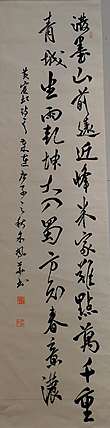 潑墨山前遠近峰米家難點萬千重
青城坐雨乾坤大入蜀方知畫意濃
黃賓虹詩 庚子之秋 書